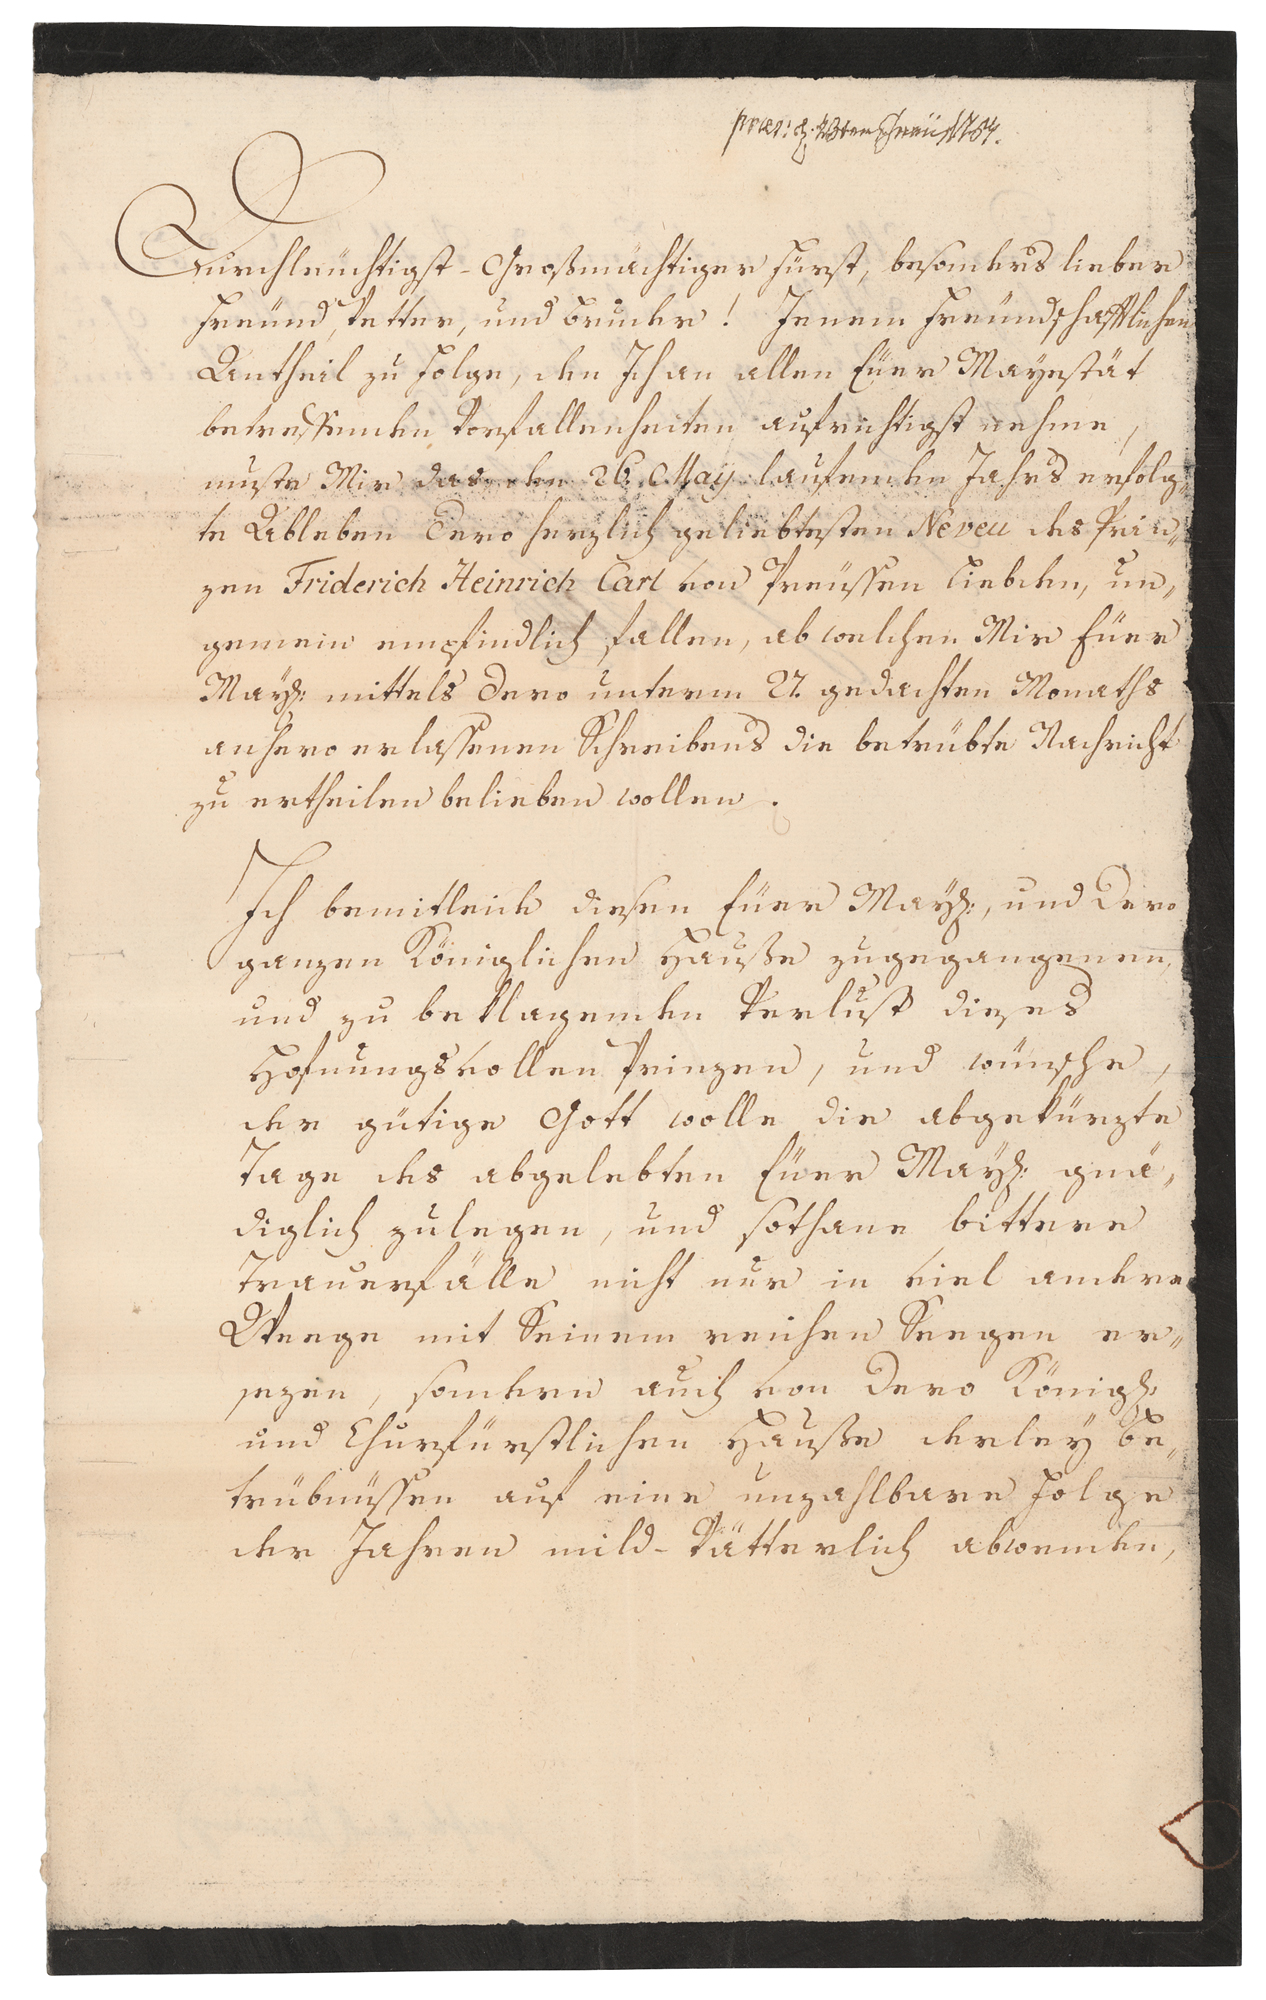 præs: d. 28ten Junii 1767.
Durchleüchtigst-Großmächtiger Fürst, besonders lieber
Freünd, Vetter, und Bruder! Jenem Freündschafftlichen
Antheil zu Folge, den Ich an allen Eüer Mayestät
betreffenden Vorfallenheiten aufrichtigst nehme,
muste Mir das den 26. May laufenden Jahrs erfolg„
te Ableben Dero herzlich geliebtesten Neveu des Prin„
zen Friderich Heinrich Carl von Preüssen Liebden, un„
gemein empfindlich fallen, ab welchen Mir Eüer
May: mittels Dero unterm 27. gedachten Monaths
anhero erlassenen Schreibens die betrübte Nachricht
zu ertheilen belieben wollen.
Ich bemitleide diesen Eüer May:, und Dero
ganzen Königlichen Hauße zugegangenen,
und zu beklagenden Verlust dieses
Hofnungsvollen Prinzen, und wünsche,
der gütige Gott wolle die abgekürzte
Tage des abgelebten Eüer May: gnä„
diglich zulegen, und sothane bittere
Trauerfälle nicht nur in viel andere
Weege mit Seinem reichen Seegen er„
sezen, sondern auch von Dero König:
und Churfürstlichen Hauße derley Be„
trübnüssen auf eine unzahlbare Folge
der Jahren mild-Vätterlich abwenden,